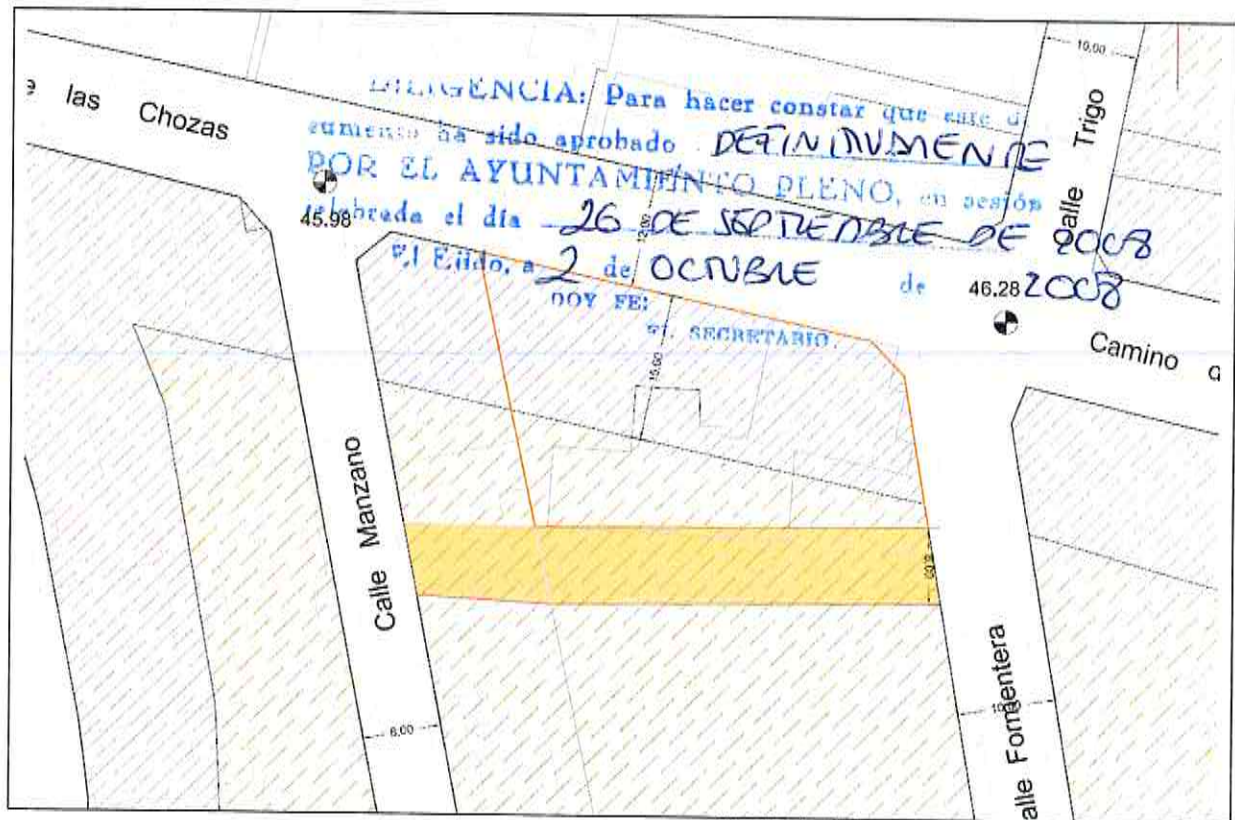 10,00
e las Chozas
DILIGENCIA: Para hacer constar que este d
cumento ha sido aprobado DEFINITIVAMENTE
POR EL AYUNTAMIENTO PLENO, en sesión
celebrada el día 26 DE SEPTIEMBRE DE 2008
El Ejido, a 2 de OCTUBRE de 2008
DOY FE:
EL SECRETARIO.
alle Trigo
45.98
12,00
46.28
Camino d
15,00
Calle Manzano
6,00
alle Formentera